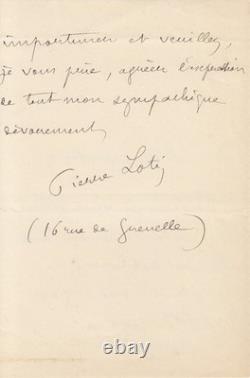 importuner et veuillez,
je vous prie, agréer l'expression
de tout mon sympathique
dévouement
Pierre Loti
(16 rue de Grenelle)
ebay